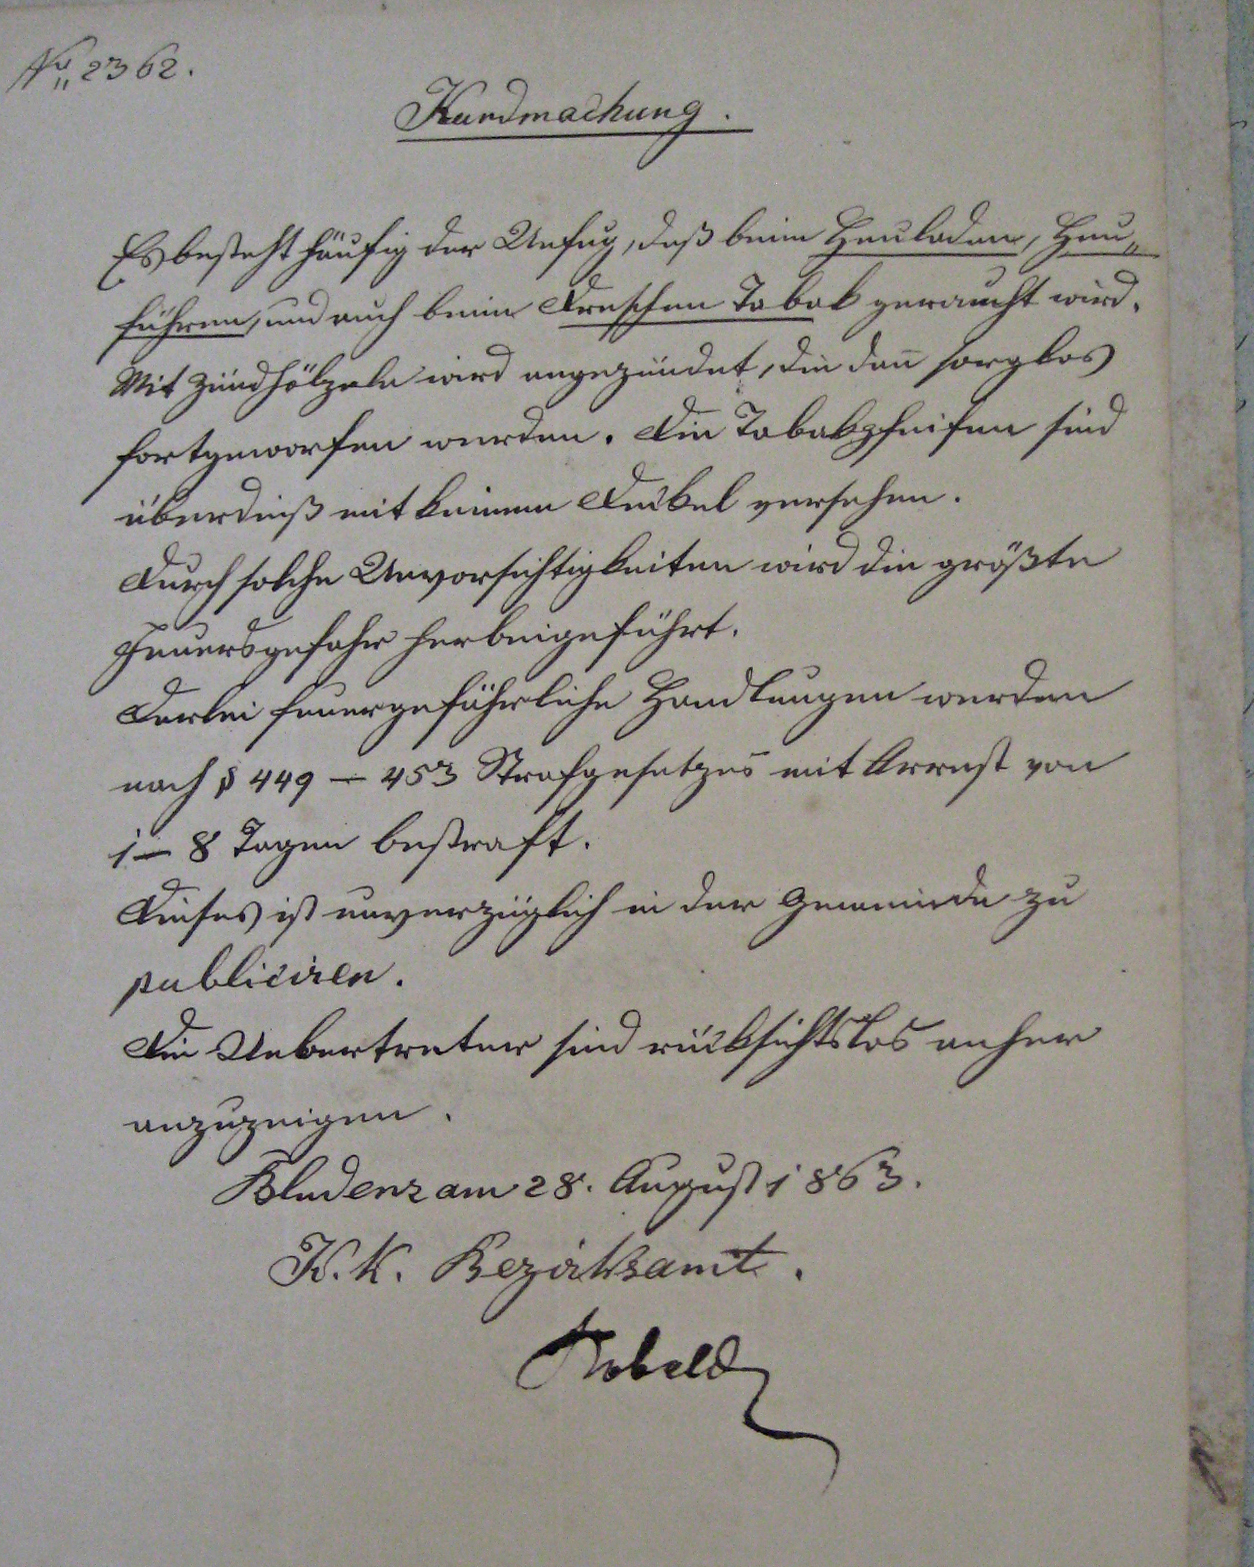 Nr 2362.
Kundmachung.
Es besteht häufig der Unfug, daß beim Heuladen, Heu„
führen, und auch beim Dreschen Tabak geraucht wird.
Mit Zündhölzeln wird angezündet, die dan̄ sorglos
fortgeworfen werden. Die Tabakpfeifen sind
überdieß mit keinem Deckel versehen.
Durch solche Unvorsichtigkeiten wird die größte
Feuersgefahr herbeigeführt.
Derlei feuergefährliche Handlungen werden
nach § 449 – 453 Strafgesetzes mit Arrest von
1 – 8 Tagen bestraft.
Dieses ist unverzüglich in der Gemeinde zu
publiciren.
Die Uebertreter sind rücksichtslos anher
anzuzeigen.
Bludenz am 28. August 1863.
K. K. Bezirksamt.